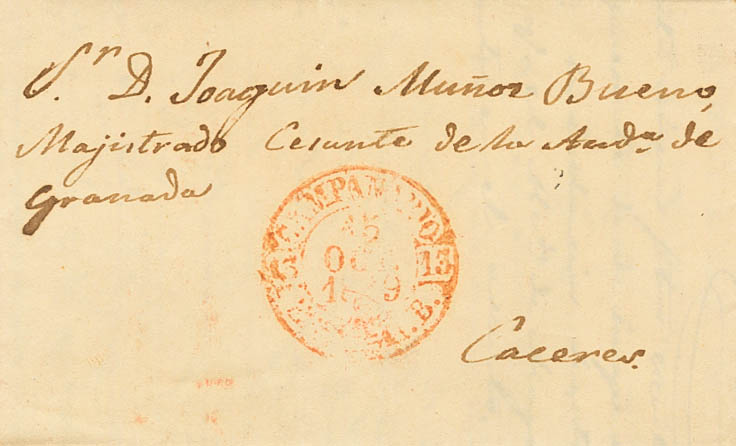 Sr. D. Joaquin Muñoz Bueno,
Majistrado Cesante de la Auda. de
Granada
CAMPANARIO
15
OCT
13
B.
Caceres.